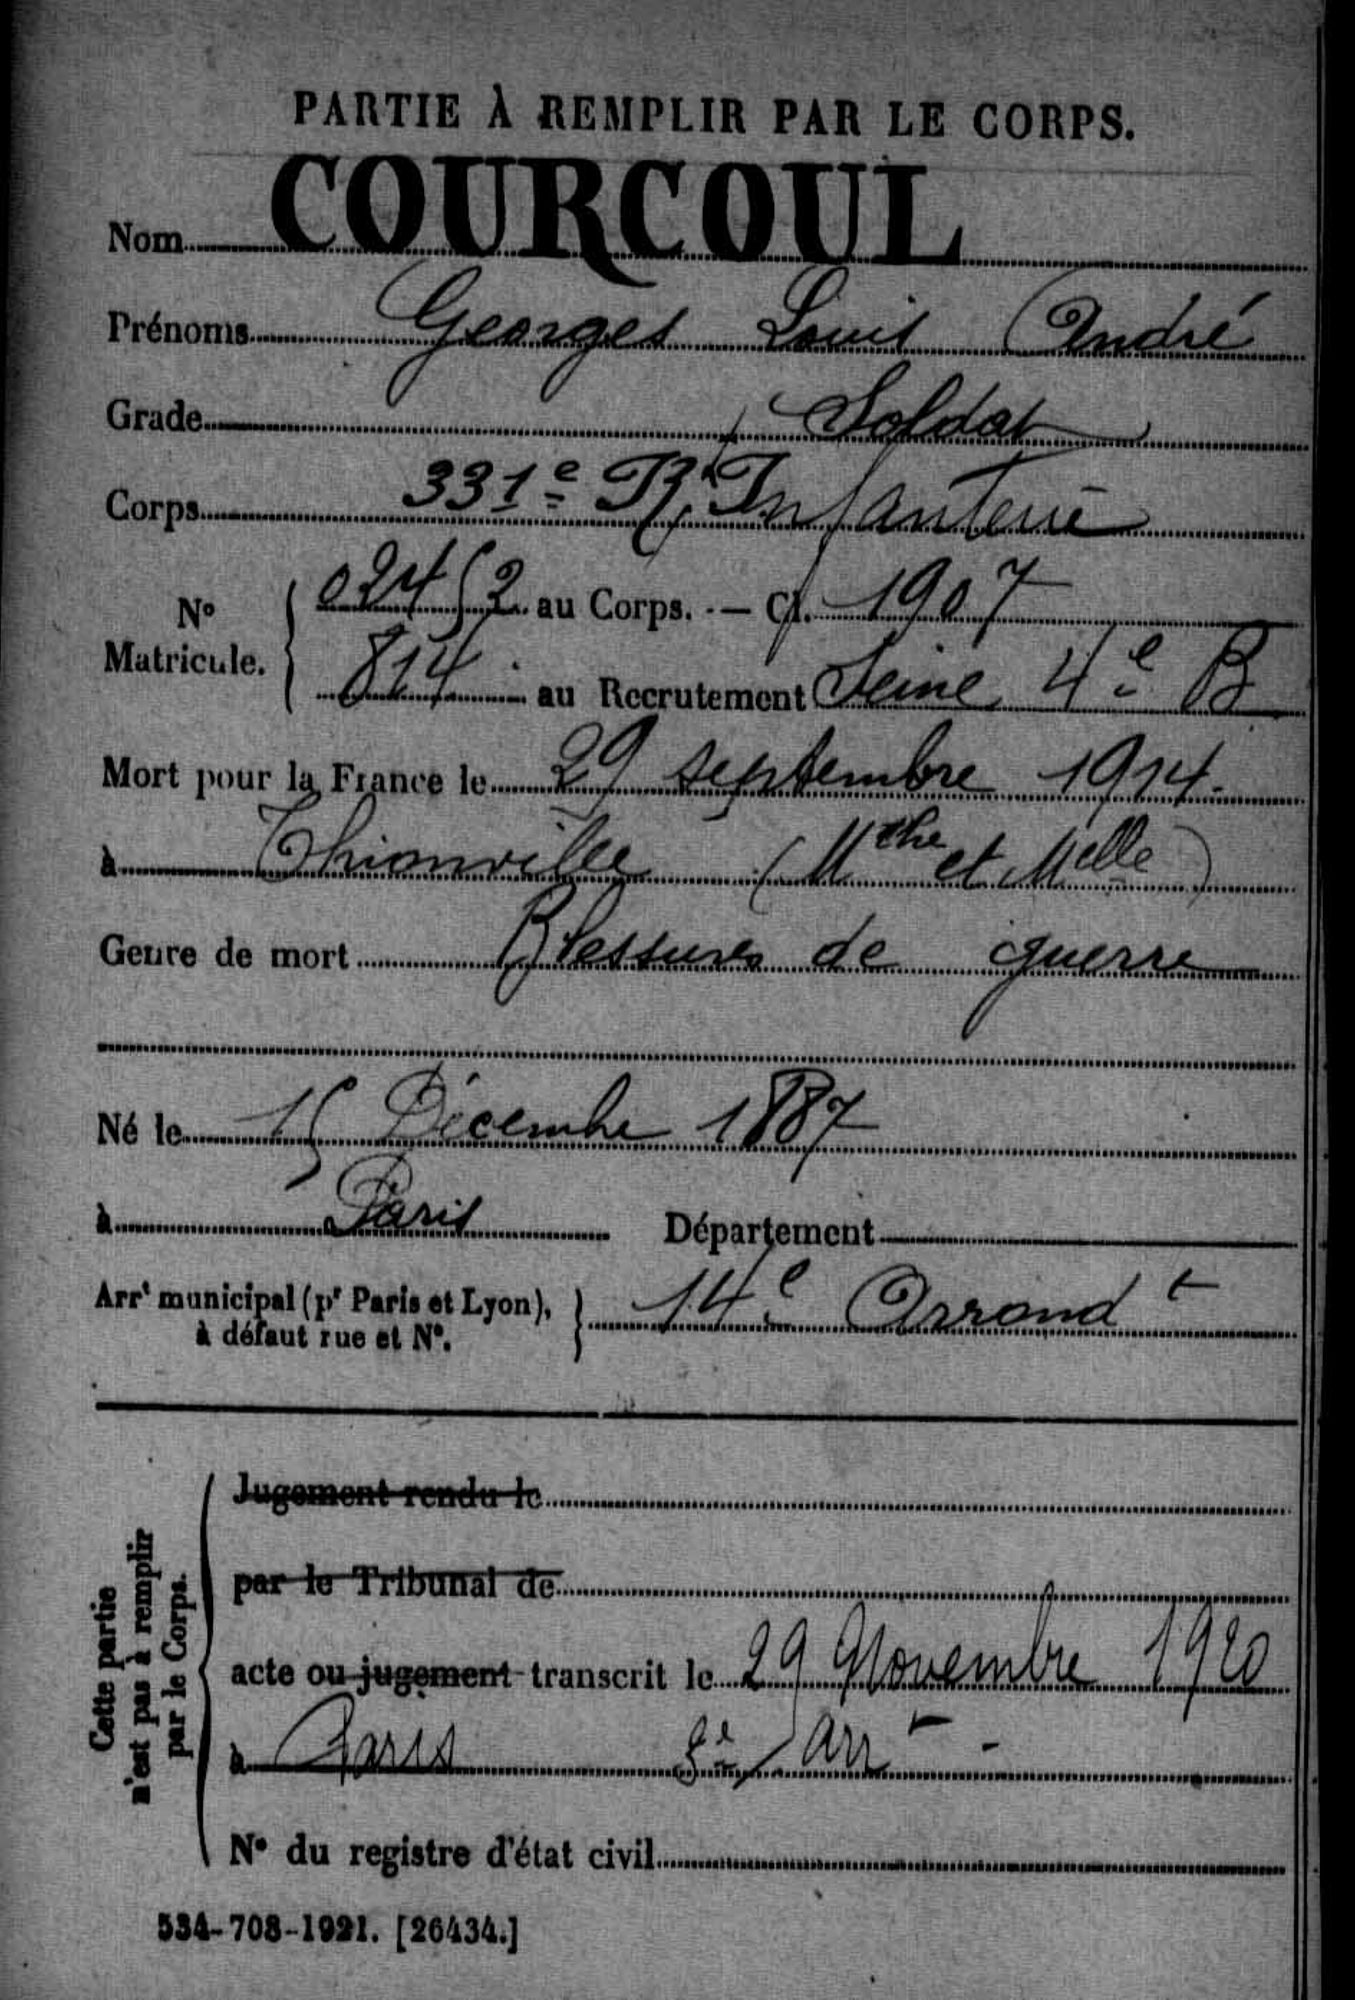 PARTIE À REMPLIR PAR LE CORPS.
Nom COURCOUL
Prénoms Georges Louis André
Grade Soldat
Corps 331e R.t Infanterie
No Matricule. { 02452 au Corps. — Cl. 1907
814 au Recrutement Seine 4e B
Mort pour la France le 29 septembre 1914.
à Thionville (Mthe et Melle)
Genre de mort Blessures de guerre
Né le 15 Décembre 1887
à Paris Département
Arrt municipal (pr Paris et Lyon), à défaut rue et No. } 14e Arrondt
Cette partie n'est pas à remplir par le Corps.
Jugement rendu le
par le Tribunal de
acte ou jugement transcrit le 29 Novembre 1920
à Paris 8e arrt -
No du registre d'état civil
534-708-1921. [26434.]